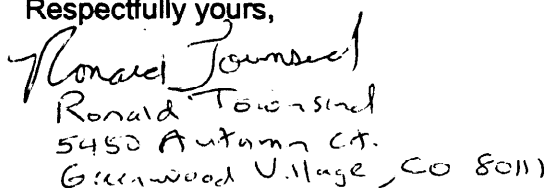 Respectfully yours,
Ronald Townsend
Ronald Townsend
5450 Autumn Ct.
Greenwood Village, CO 80111